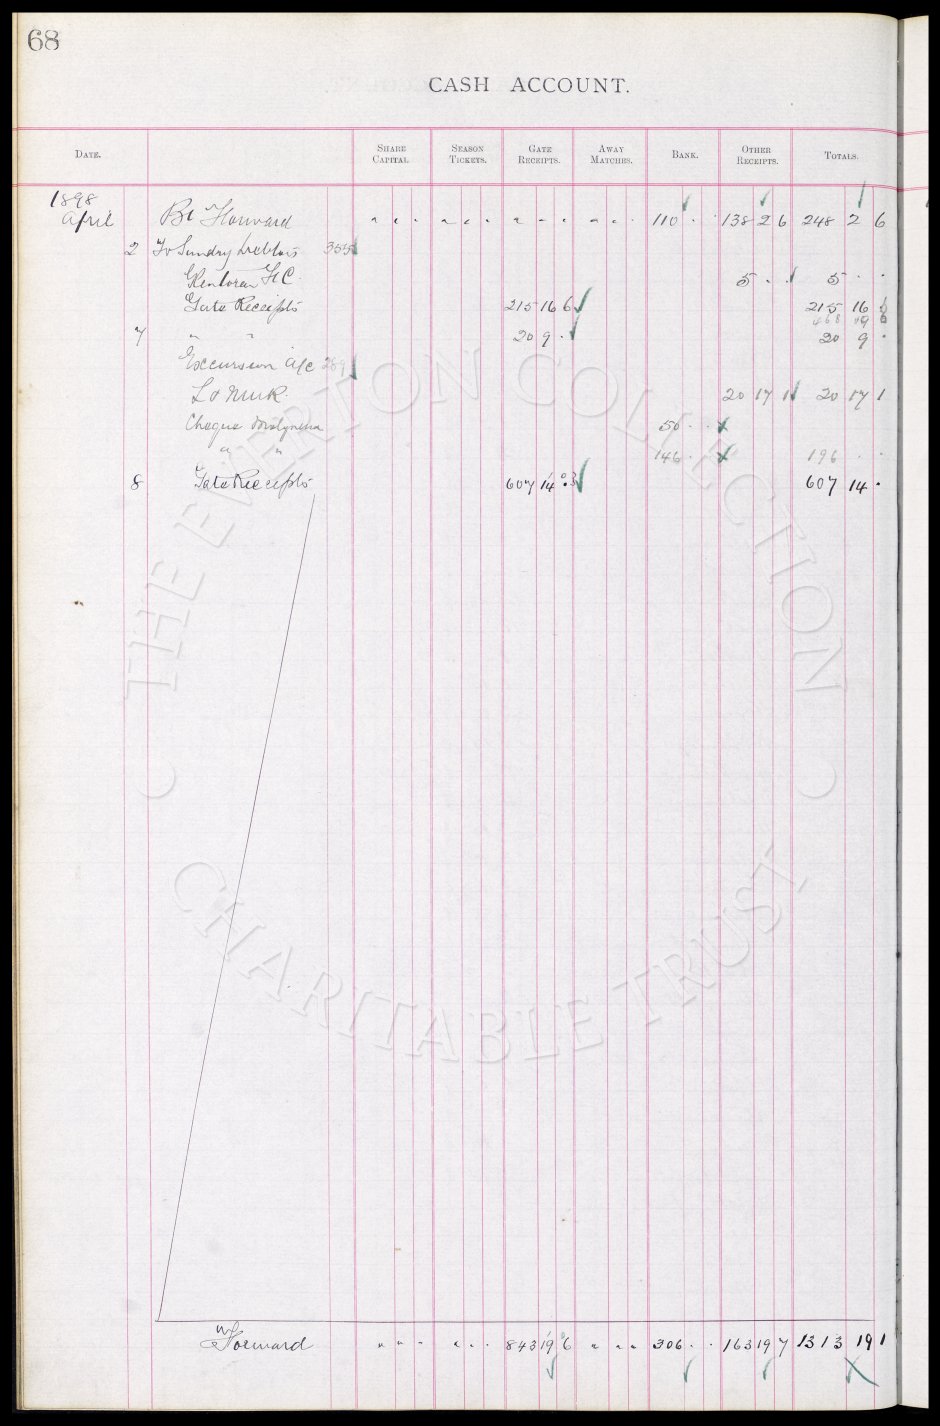 68
CASH ACCOUNT.
DATE. SHARE CAPITAL. SEASON TICKETS. GATE RECEIPTS. AWAY MATCHES. BANK. OTHER RECEIPTS. TOTALS.
1898
April Bt Forward " " " " " " " " " " " " 110 . . 138 2 6 248 2 6
2 To Sundry Debtors 355
F C 5 . . 5 . .
Gate Receipts 215 16 6 215 16 6
468 19
7 " " 20 9 . 20 9 .
Excursion a/c 289
L & 20 17 1 20 17 1
Cheque 50 . .
" " 146 . . 196 . .
8 Gate Receipts 607 14 . 607 14 .
Forward " " " " " . 843 19 6 " " " 306 . . 163 19 7 1313 19 1
THE EVERTON COLLECTION
CHARITABLE TRUST